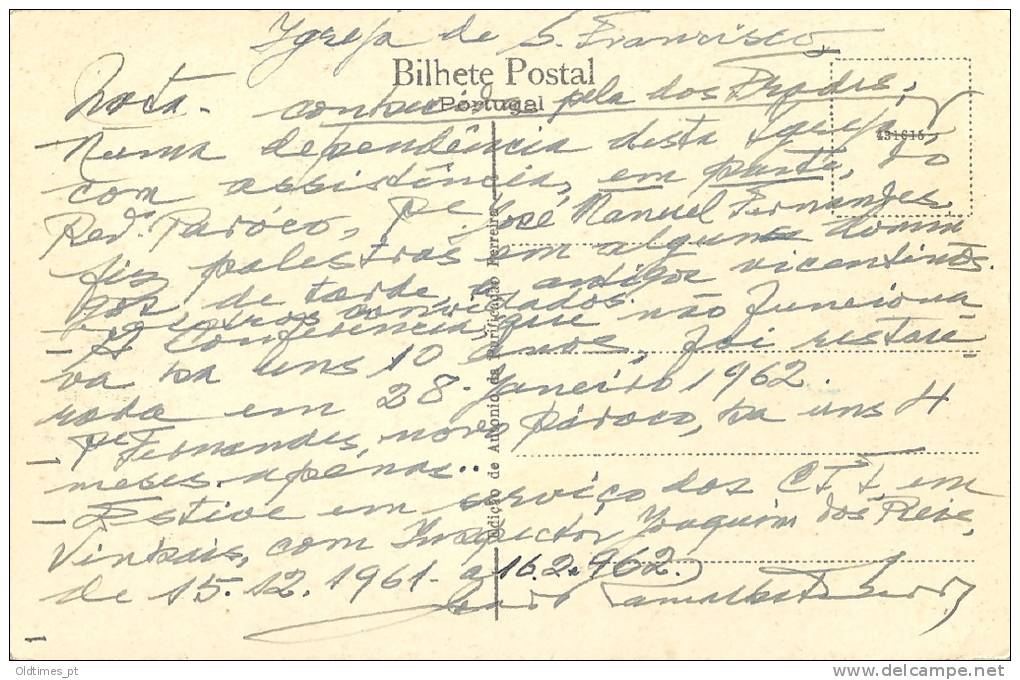 Igreja de S. Francisco,
Bilhete Postal
Portugal
Nota - conhecida pela dos Frades.
431615
Numa dependência desta Igreja,
com assistência, em parte, do
Red.º Paróco, Pe. José Manuel Fernandes,
fiz palestras em alguns domin
gos, de tarde a antigos vicentinos.
e outros convidados.
A Conferência, que não funciona
va ha uns 10 anos, foi restau
rada em 28 Janeiro 1962.
Pe Fernandes, novo pároco, ha uns 4
meses apenas..
Estive em serviço dos CTT em
Vinhais, com Inspector Joaquim dos Reis,
de 15.12.1961 a 16.2.962.
Ramalho
Edição de Antonio da Purificação Ferreira
Oldtimes_pt
www.delcampe.net